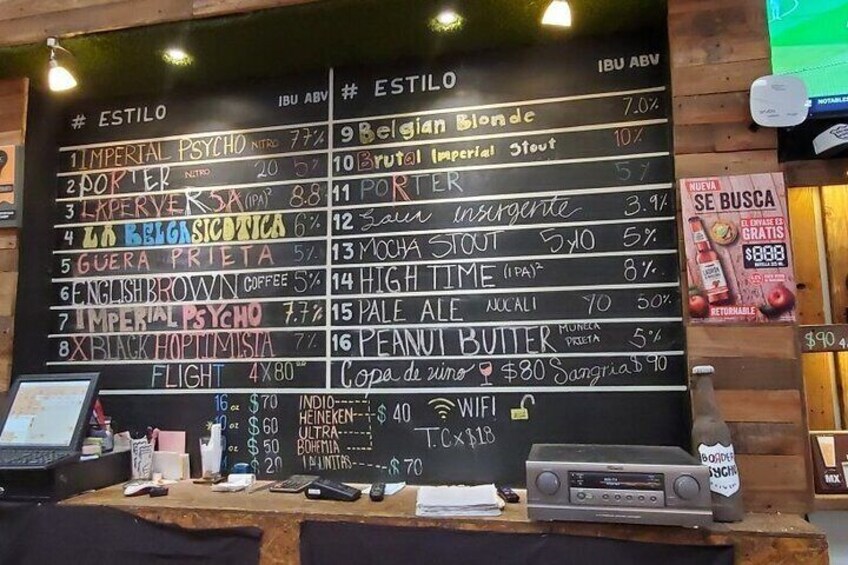 # ESTILO IBU ABV
1 IMPERIAL PSYCHO NITRO 7.7%
2 PORTER NITRO 20 5%
3 LAPERVERSA (IPA)² 8.8
4 LA BELGASICOTICA 6%
5 GÜERA PRIETA 5%
6 ENGLISH BROWN COFFEE 5%
7 IMPERIAL PSYCHO 7.7%
8 X BLACK HOPTIMISTA 7%
FLIGHT 4X80
# ESTILO IBU ABV
9 Belgian Blonde 7.0%
10 Brutal Imperial Stout 10%
11 PORTER 5%
12 insurgente 3.9%
13 MOCHA STOUT 5%
14 HIGH TIME (IPA)² 8%
15 PALE ALE
16 PEANUT BUTTER MUÑECA PRIETA 5%
Copa de vino $80 Sangria $90
16 oz $70
$60
$50
$20
INDIO
HEINEKEN
ULTRA
BOHEMIA
$40
$70
WIFI
T.C x $18
NUEVA
SE BUSCA
EL ENVASE ES
GRATIS
RETORNABLE
$90
BORDER
PSYCHO
MX
NOTABLES